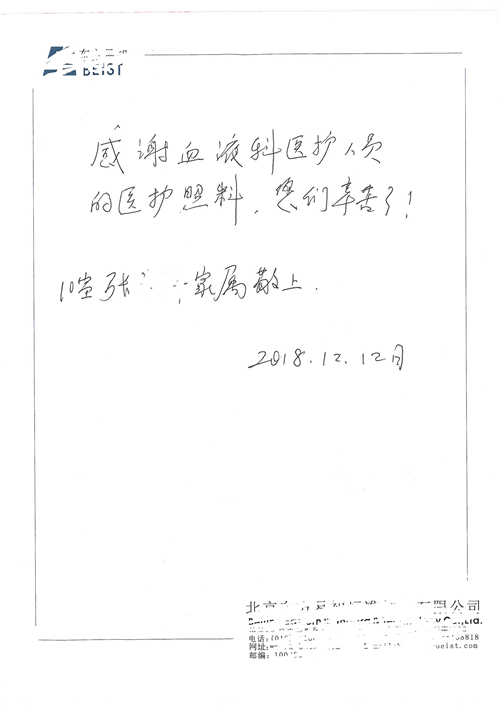 BEIST
感谢血液科医护人员
的医护照料，您们辛苦了！
10室张 家属敬上.
2018.12.12日
北京 有限公司
电话:(01 6818
网址: eist.com
邮编:100